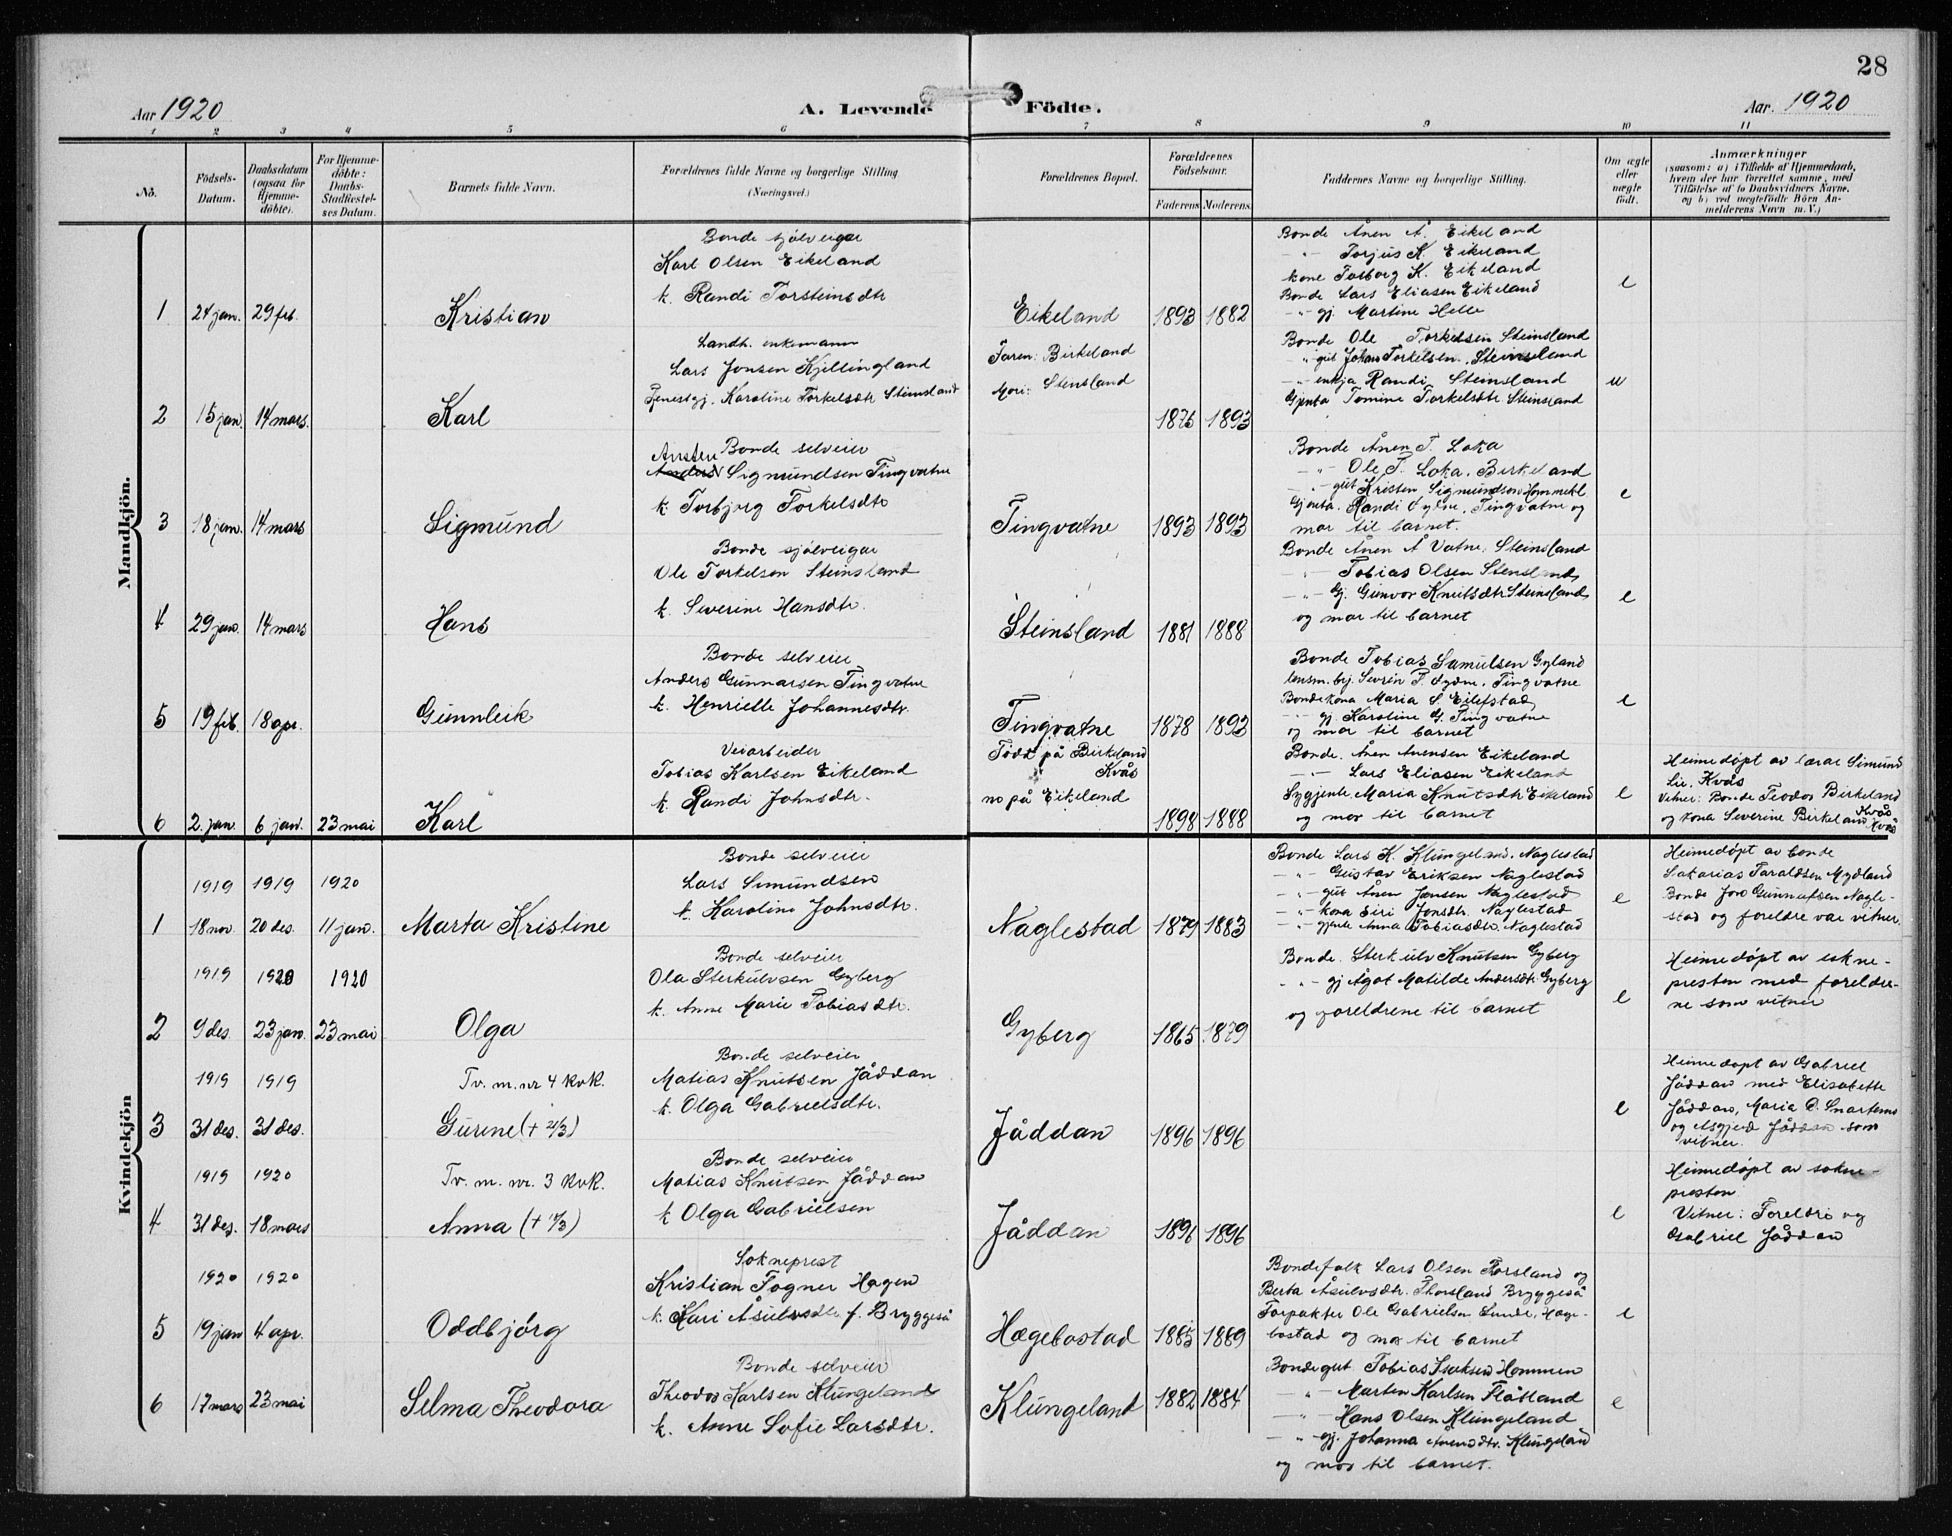 28
Aar 1920
A. Levende Födte.
Aar. 1920
1 2 3 4 5 6 7 8 9 10 11
No.
Födsels-Datum.
Daabsdatum (ogsaa for Hjemme-döbte).
For Hjemme-döbte: Daabs-Stadfæstel-ses Datum.
Barnets fulde Navn.
Forældrenes fulde Navne og borgerlige Stilling (Næringsvei.)
Forældrenes Bopæl.
Forældrenes Födselsaar.
Faderens Moderens
Faddernes Navne og borgerlige Stilling.
Om ægte eller uægte født.
Anmærkninger
(saasom: a) i Tilfælde af Hjemmedaab,
hvem der har forrettet samme, med
Tilföielse af to Daabsvidners Navne.
og b) ved uægtefödte Börn An-
melderens Navn m. V.)
Mandkjön.
1 24 jan. 29 feb. Kristian
Bonde sjølveigar
Karl Olsen Eikeland
k. Randi Torsteinsdtr
Eikeland 1893 1882
Bonde Ånen Å. Eikeland
-"- Torjus K. Eikeland
kone Tolborg K. Eikeland
Bonde Lars Eliasen Eikeland
-"- gj. Martine Helle
e
2 15 jan. 14 mars. Karl
Landh. enkemann
Lars Jonsen Kjellingland
Tjenestgj. Karoline Torkelsdtr Steinsland
Faren: Birkeland
Mori: Stensland
1875 1893
Bonde Ole Torkelsen Steinsland
-"- gut Johan Torkelsen. Steinsland
-"- enkja Randi Steinsland
Gjenta Tomine Torkelsdtr Steinsland
u
3 18 jan. 14 mars Sigmund
Bonde selveier
Ansten
Anders Sigmundsen Tingvatne
k. Torbjørg Torkelsdtr
Tingvatne 1893 1893
Bonde Ånen T. Loka
-"- Ole T. Loka. Birkeland
-"- gut Kristen Sigmundson Hommekl
Gjenta. Randi Lydne. Tingvatne og
mor til barnet.
e
4 29 jan. 14 mars Hans
Bonde sjølveigar
Ole Torkelson Steinsland
k. Severine Hansdtr.
Steinsland 1881 1888
Bonde Ånen Å Vatne. Steinsland
-"- Tobias Olsen Stensland
-"- gj. Gunvor Knutsdtr Steinsland
og mor til barnet
e
5 19 feb. 18 apr. Gunnleik
Bonde selveier
Anders Gunnarsen Tingvatne
k. Henrielle Johannesdtr.
Tingvatne 1878 1893
Bonde Tobias Samulsen Gyland
lensm. btj. Sevrin T. Lydne. Tingvatne
Bondekona Maria S. Eilefstad
-"- gj Karoline G. Tingvatne
og mor til barnet
e
6 2. jan. 6 jan. 23 mai Karl
Veiarbeider
Tobias Karlsen Eikeland
k. Randi Johnsdtr.
Fødd på Birkeland
Kvås
no på Eikeland
1898 1888
Bonde. Ånen Anensen Eikeland
-"- Lars Eliasen Eikeland
Sygjente Maria Knutsdtr Eikeland
og mor til barnet
e
Heimedøpt av lærar Simund
Lie. Kvås
Vitner: Bonde Teodor Birkeland Kvås
og kona Severine Birkeland Kvås
Kvindekjön
1919 1919 1920
1 18 nov. 20 des. 11 jan. Marta Kristine
Bonde selveier
Lars Simundsen
k. Karoline Johnsdtr.
Naglestad 1879 1883
Bonde Lars K. Klungeland. Naglestad
-"- Gustav Eriksen Naglestad
-"- gut Ånen Jonsen Naglestad
-"- kona Siri Jonsdtr. Naglestad
-"- gjente Anna Tobiasdtr. Naglestad
e
Heimedøpt av bonde
Sakarias Taraldsen Mydland
Bonde Jon Gunnufsen Nagle-
stad og foreldre var vitner.
1919 1920 1920
2 9 des. 23 jan. 23 mai Olga
Bonde selveier
Ola Sterkulvsen Gyberg
k. Anne Marie Tobiasdtr.
Gyberg 1865 1879
Bonde. Sterkulv Knutsen Gyberg
-"- gj Ågot Matilde Andersdtr. Gyberg
og foreldrene til barnet
e
Heimedøpt av sokne-
presten med foreldre-
ne som vitner
1919 1919
Tv. m. nr 4 kvk.
3 31 des. 31 des. Gurine (+ 21/3)
Bonde selveier
Matias Knutsen Jåddan
k. Olga Gabrielsdtr.
Jåddan 1896 1896
e
Heimedøpt av Gabriel
Jåddan med Elisabette
Jåddan, Maria O. Snartemo
og Asgjerd Jåddan som
vitner.
1919 1920
Tv. m. nr. 3 kvk.
4 31 des. 18 mars Anna
Bonde selveier
Matias Knutsen Jåddan
k Olga Gabrielsen
Jåddan 1896 1896
e
Heimedøpt av sokne-
presten
Vitner: Foreldre og
Gabriel Jåddan
1920 1920
5 19 jan 4 apr. Oddbjørg
Sokneprest
Kristian Fogner Hagen
k. Kari Åsulvsdtr f. Bryggeså
Hægebostad 1885 1889
Bondefolk Lars Olsen Torsland og
Berta Åsulvsdtr. Thorsland Bryggeså
Forpakter Ole Gabrielsen Sunde, Hæge-
bostad og mor til barnet
e
6 17 mars 23 mai Selma Theodora
Bonde selveier
Theodor Karlsen Klungeland
k. Anne Sofie Larsdtr.
Klungeland 1882 1884
Bondegut Tobias Isaksen Hommen
-"- Morten Karlsen Flåtland
-"- Hans Olsen Klungeland
-"- gj. Johanna Anensdtr. Klungeland
og mor til barnet.
e